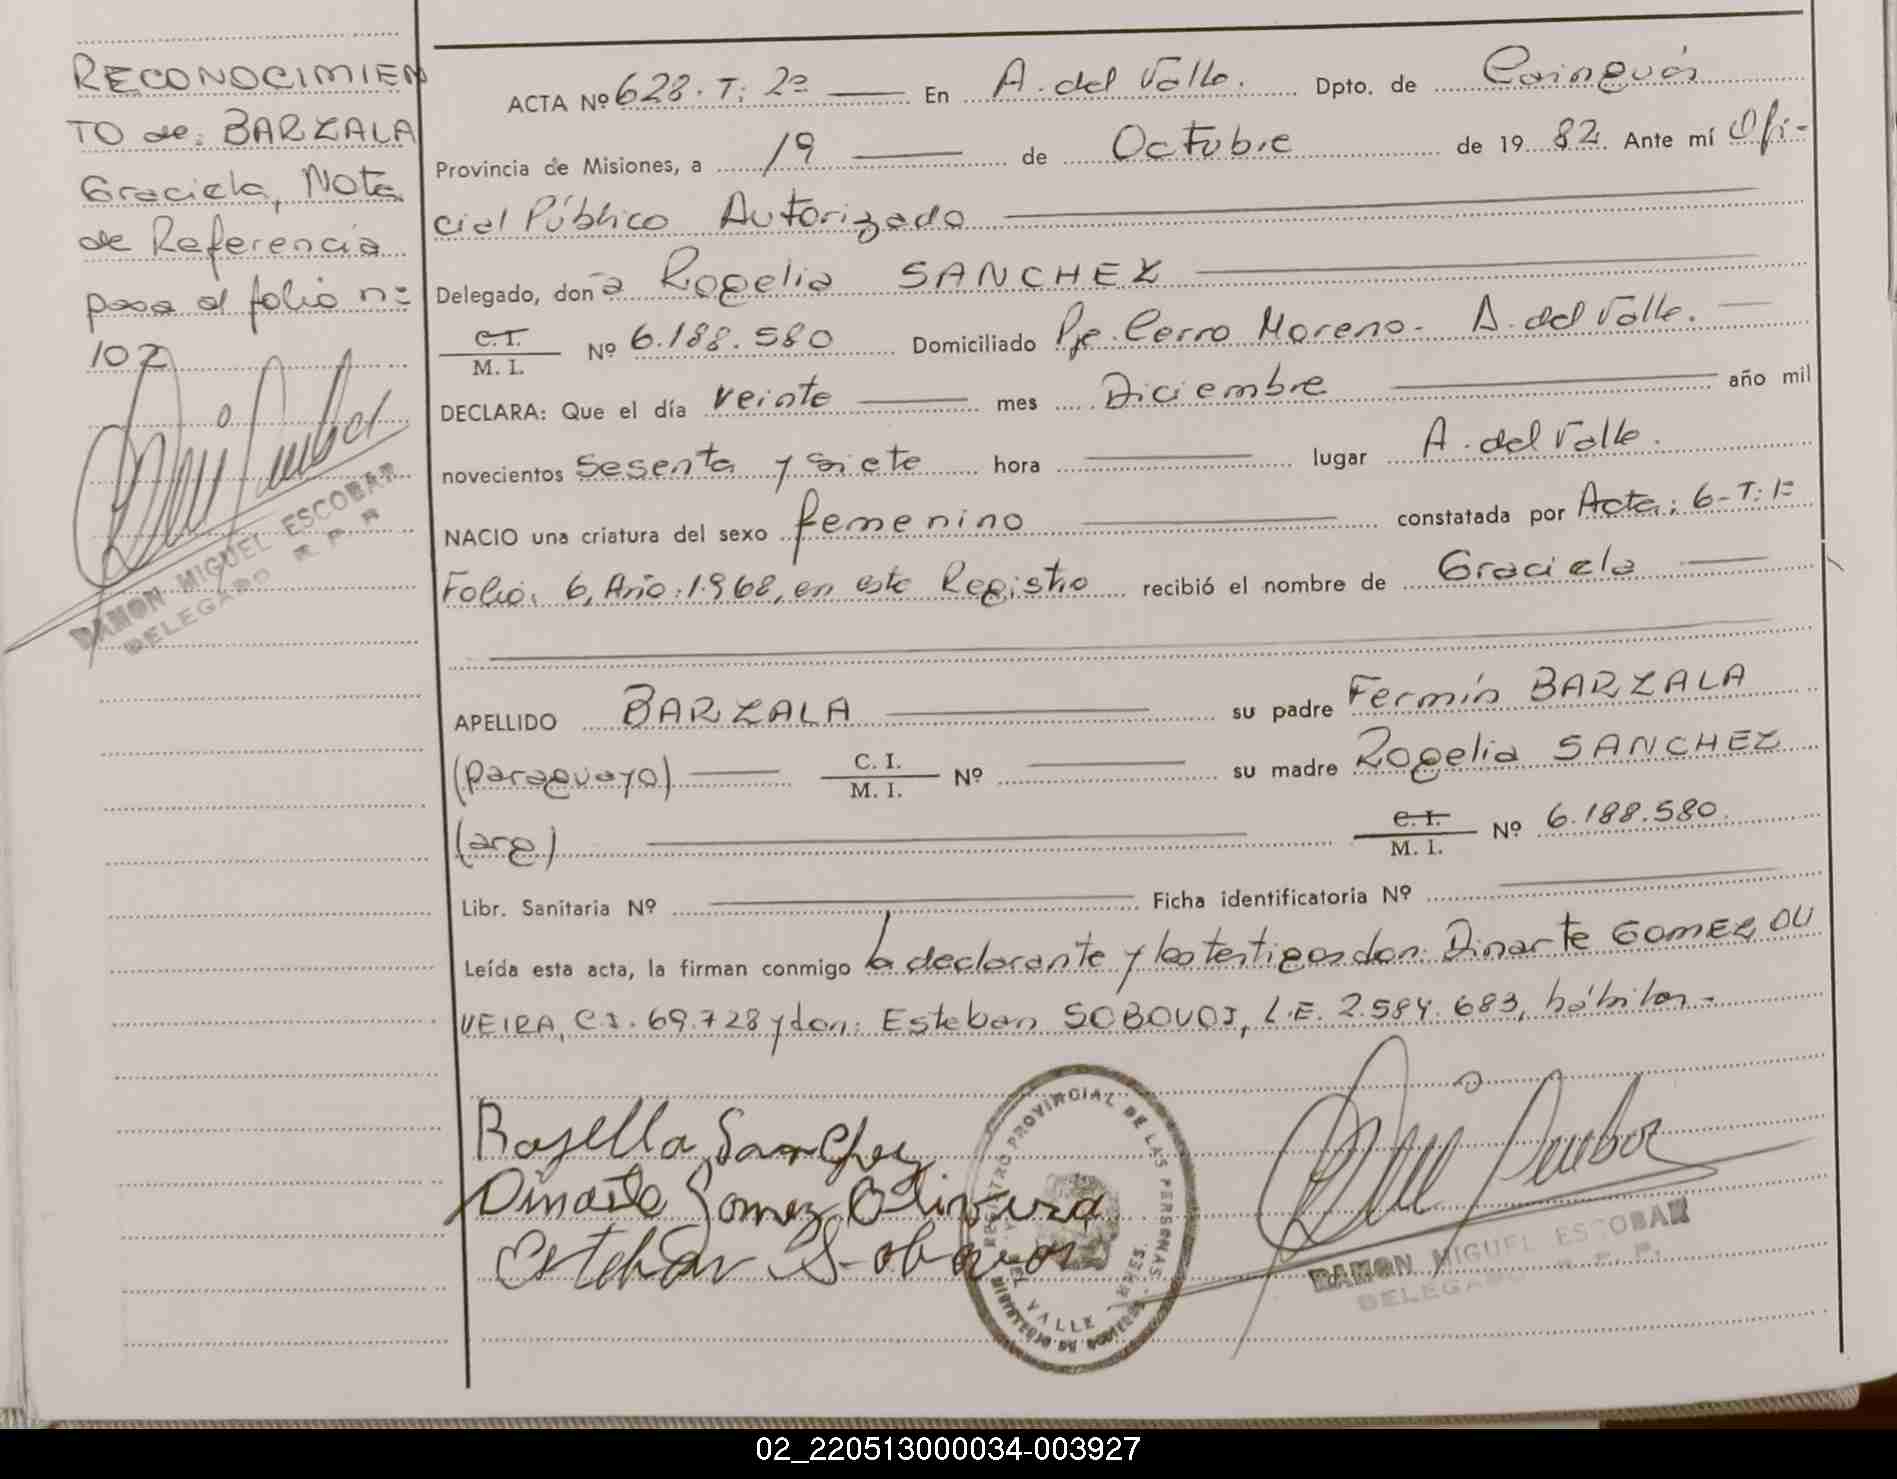 RECONOCIMIEN
TO de: BARZALA
Graciela, Nota
de Referencia
pasa al folio nº
102
RAMON MIGUEL ESCOBAR
DELEGADO R. P. P.
ACTA Nº 628. T: 2º En A. del Valle. Dpto. de Cainguás
Provincia de Misiones, a 19 de Octubre de 1982. Ante mí Ofi-
cial Público Autorizado
Delegado, doña Rogelia SANCHEZ
C. I.
M. I. Nº 6.188.580 Domiciliado Pje. Cerro Moreno. A. del Valle.
DECLARA: Que el día veinte mes Diciembre año mil
novecientos sesenta y siete hora lugar A. del Valle.
NACIO una criatura del sexo femenino constatada por Acta: 6-T: 1º
Folio: 6, Año: 1.968, en este Registro recibió el nombre de Graciela
APELLIDO BARZALA su padre Fermín BARZALA
(paraguayo) C. I. M. I. Nº su madre Rogelia SANCHEZ
(arg) C. I. M. I. Nº 6.188.580.
Libr. Sanitaria Nº Ficha identificatoria Nº
Leída esta acta, la firman conmigo la declarante y los testigos don: Dinarte GOMEZ OLI
VEIRA, C.I. 69.728 y don: Esteban SOBOVOI, L.E. 2.584.683, hábiles-
Rogelia Sanchez
Dinarte Gomez Oliveira
Esteban
REGISTRO PROVINCIAL DE LAS PERSONAS
DEL VALLE (MNES.)
RAMON MIGUEL ESCOBAR
DELEGADO R. P. P.
02_220513000034-003927